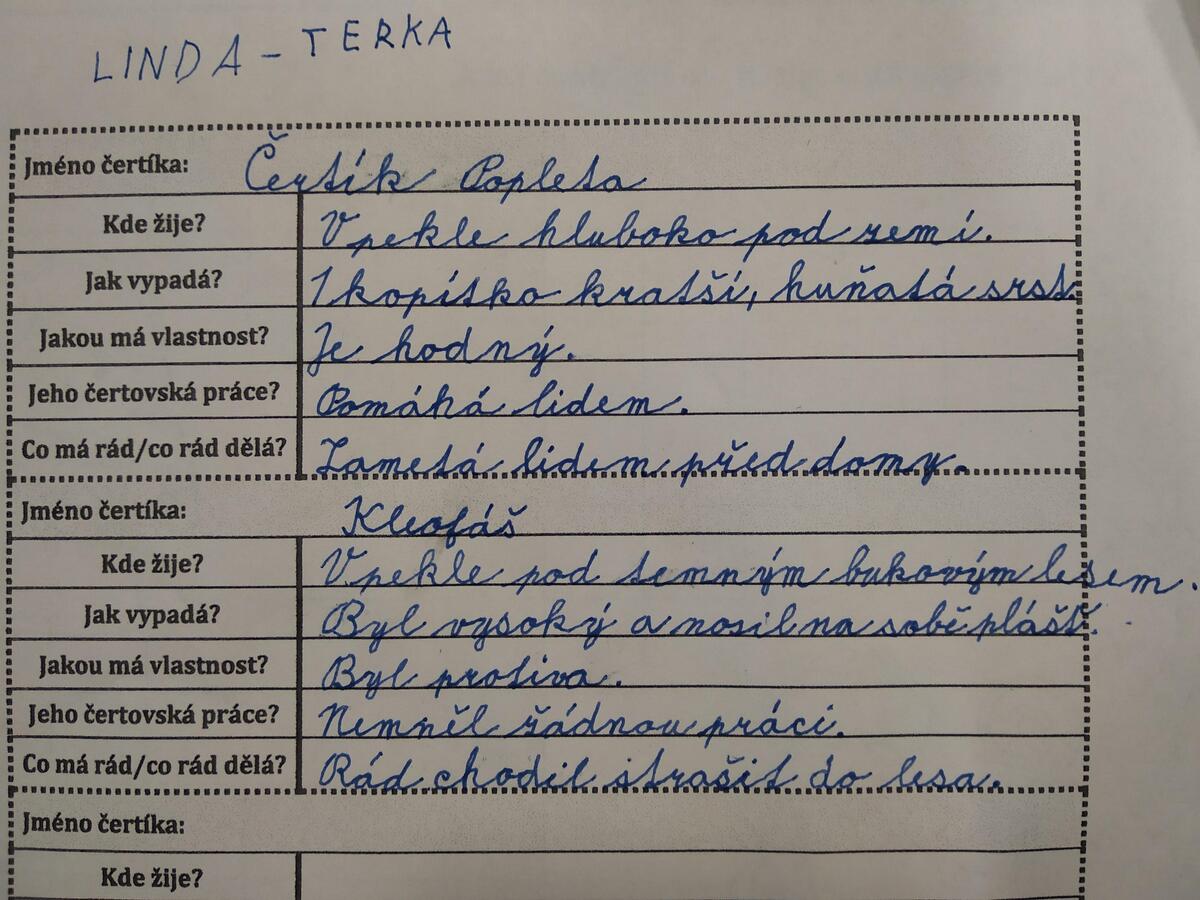 LINDA - TERKA
Jméno čertíka: Čertík Popleta
Kde žije? V pekle hluboko pod zemí.
Jak vypadá? 1 kopítko kratší, huňatá srst.
Jakou má vlastnost? Je hodný.
Jeho čertovská práce? Pomáhá lidem.
Co má rád/co rád dělá? Zametá lidem před domy.
Jméno čertíka: Kleofáš
Kde žije? V pekle pod temným bukovým lesem.
Jak vypadá? Byl vysoký a nosil na sobě plášť.
Jakou má vlastnost? Byl protiva.
Jeho čertovská práce? Nemněl žádnou práci.
Co má rád/co rád dělá? Rád chodil strašit do lesa.
Jméno čertíka:
Kde žije?